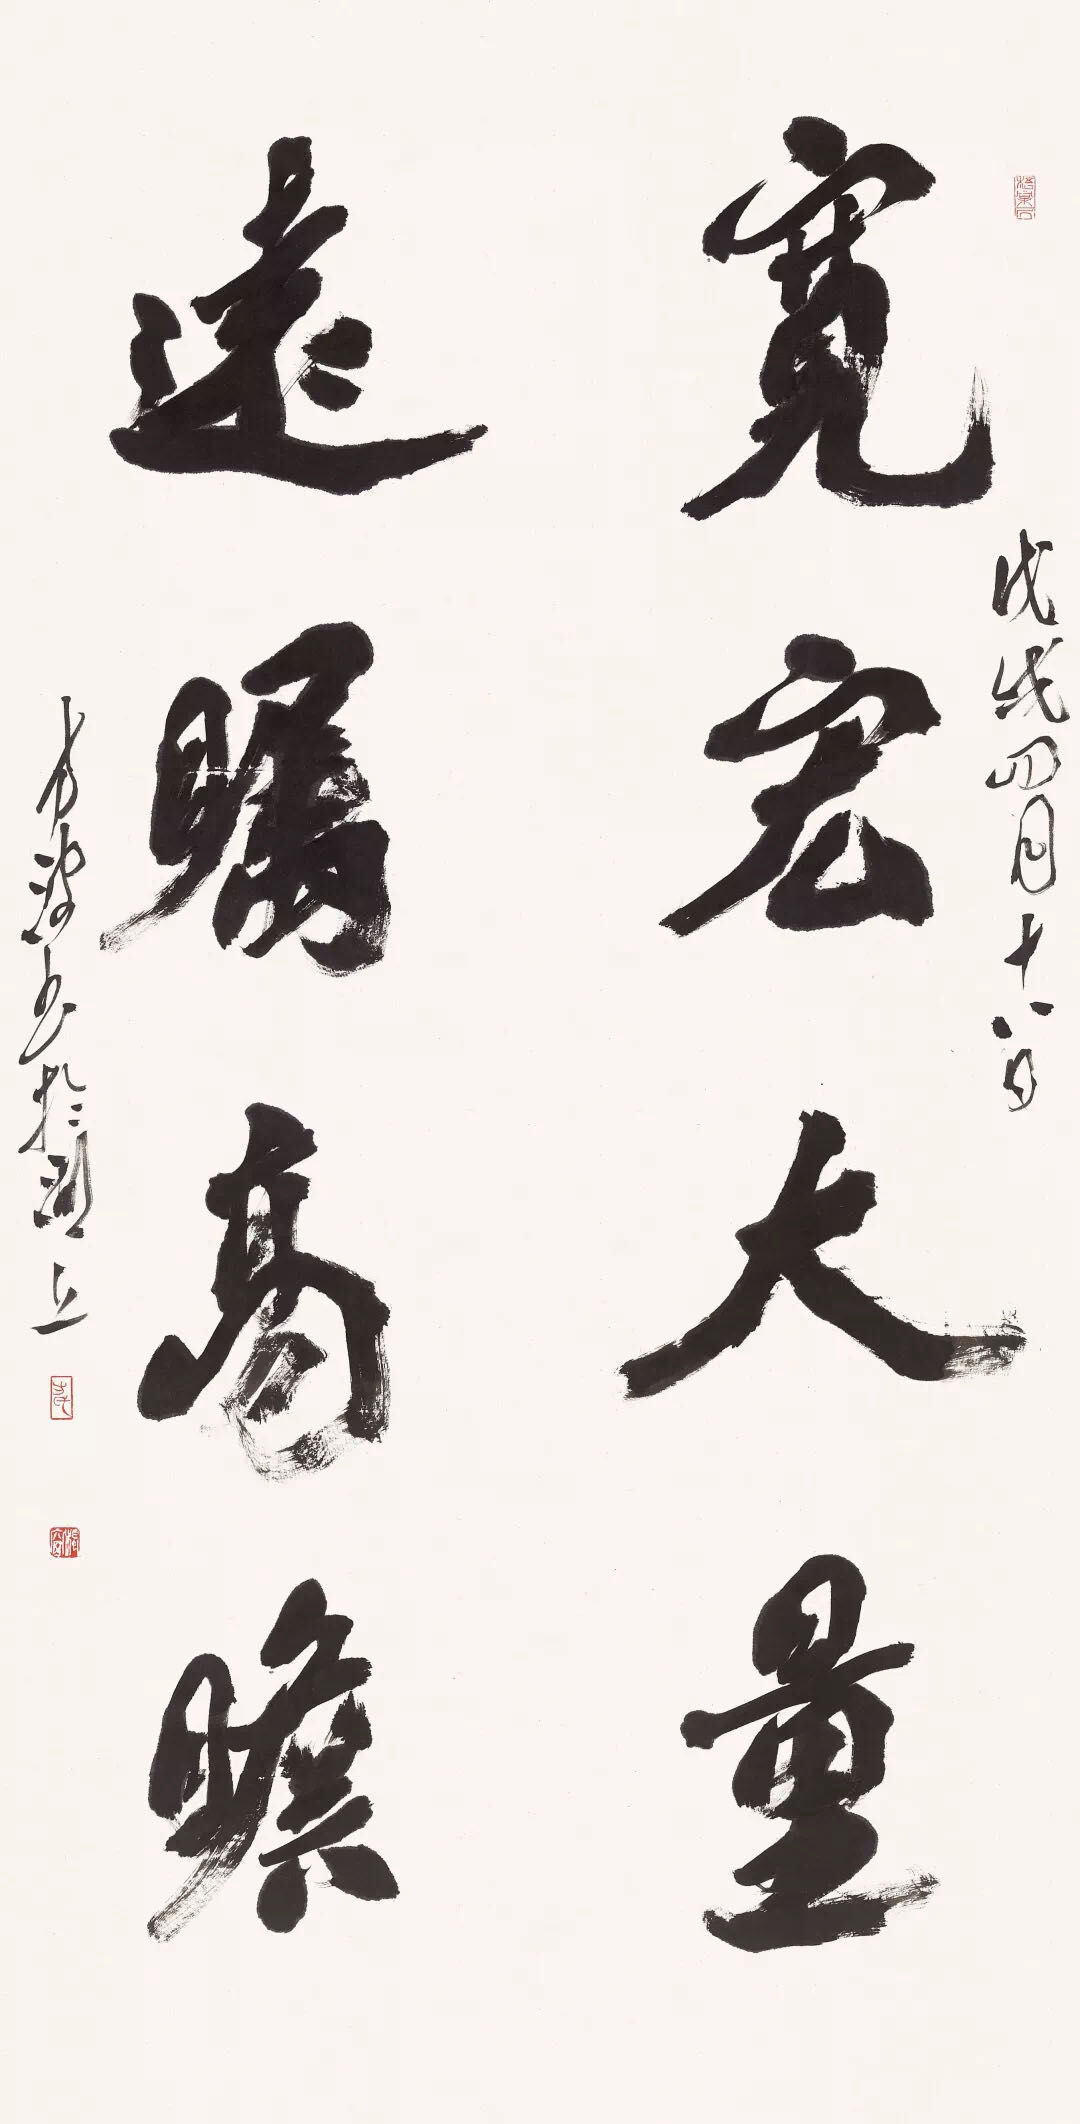 寬宏大量
遠矚高瞻
戊戌四月十八日
方波書於湖上